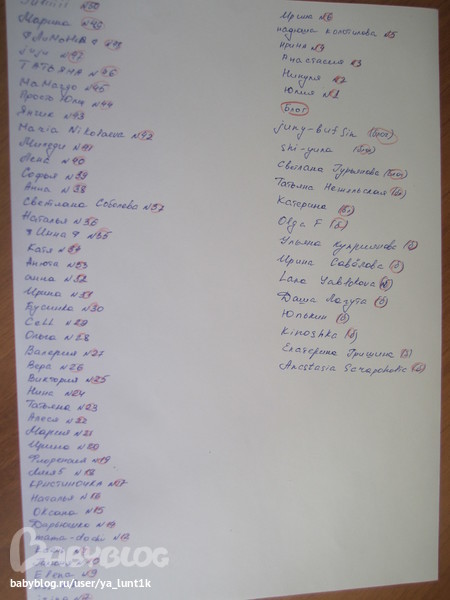 Марина №49
№48
juju №47
ТАТЬЯНА №46
Мамаззо №45
Просто Юлу №44
Янчик №43
Maria Nikolaeva №42
Миндди №41
Лена №40
Софья №39
Анна №38
Светлана Соболева №37
Наталья №36
Инна №35
Катя №34
Анюта №33
анна №32
Ирина №31
Бусинка №30
Cell №29
Ольга №28
Валерия №27
Вера №26
Виктория №25
Нина №24
Татьяна №23
Алеся №22
Мария №21
Ирина №20
Флоренсия №19
№18
кристиночка №17
Наталья №16
Оксана №15
Дарьюшка №14
mama-dochi №13
Elena №9
Ирина №6
надюша колотилова №5
Арина №4
Анастасия №3
Нинуля №2
Юлия №1
Блог
juny-butsin (блог)
shi-yuna (блог)
Светлана Гурьянова (блог)
Татьяна Нежельская (бл)
Катерина (бл)
Olga F (б)
Ульяна Куприянова (б)
Ирина Соболова (б)
Lana Yablokova (б)
Даша Лазута (б)
Юлькин (б)
Kinoshka (б)
Екатерина Гришина (б)
Anastasia (б)
BABYBLOG
babyblog.ru/user/ya_lunt1k